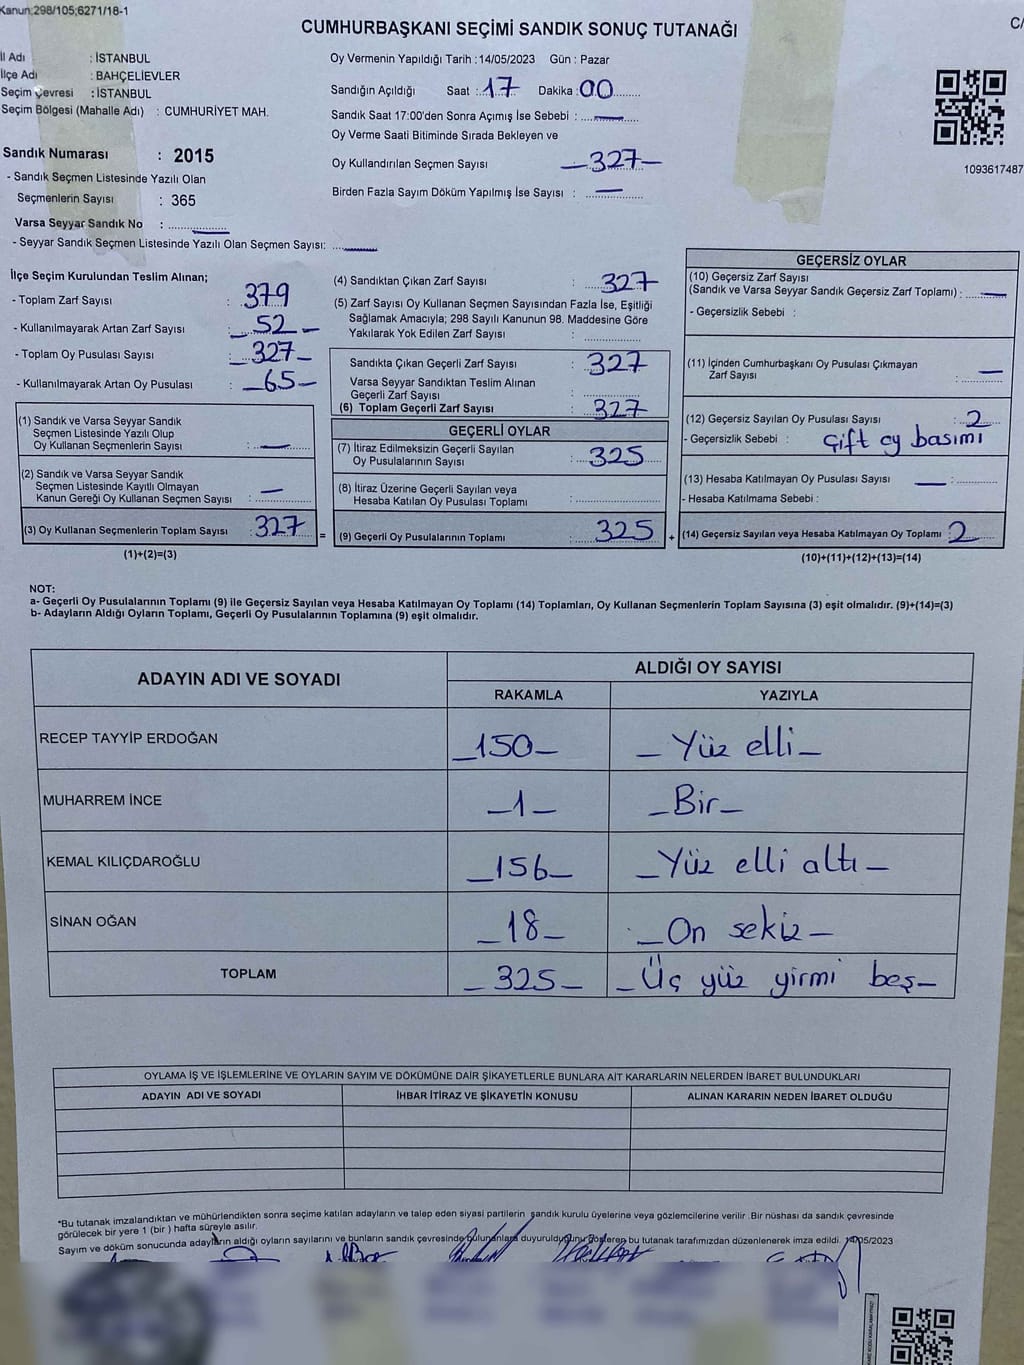 Kanun:298/105;6271/18-1
CUMHURBAŞKANI SEÇİMİ SANDIK SONUÇ TUTANAĞI
C/
İl Adı : İSTANBUL
İlçe Adı : BAHÇELİEVLER
Seçim Çevresi : İSTANBUL
Seçim Bölgesi (Mahalle Adı) : CUMHURİYET MAH.
Sandık Numarası : 2015
- Sandık Seçmen Listesinde Yazılı Olan
Seçmenlerin Sayısı : 365
Varsa Seyyar Sandık No :
- Seyyar Sandık Seçmen Listesinde Yazılı Olan Seçmen Sayısı:
Oy Vermenin Yapıldığı Tarih :14/05/2023 Gün : Pazar
Sandığın Açıldığı Saat : 17 Dakika : 00
Sandık Saat 17:00'den Sonra Açımış İse Sebebi :
Oy Verme Saati Bitiminde Sırada Bekleyen ve
Oy Kullandırılan Seçmen Sayısı 327
Birden Fazla Sayım Döküm Yapılmış İse Sayısı :
1093617487
İlçe Seçim Kurulundan Teslim Alınan;
- Toplam Zarf Sayısı : 379
- Kullanılmayarak Artan Zarf Sayısı : 52
- Toplam Oy Pusulası Sayısı : 327
- Kullanılmayarak Artan Oy Pusulası : 65
(1) Sandık ve Varsa Seyyar Sandık
Seçmen Listesinde Yazılı Olup
Oy Kullanan Seçmenlerin Sayısı :
(2) Sandık ve Varsa Seyyar Sandık
Seçmen Listesinde Kayıtlı Olmayan
Kanun Gereği Oy Kullanan Seçmen Sayısı :
(3) Oy Kullanan Seçmenlerin Toplam Sayısı : 327
(1)+(2)=(3)
(4) Sandıktan Çıkan Zarf Sayısı : 327
(5) Zarf Sayısı Oy Kullanan Seçmen Sayısından Fazla İse, Eşitliği
Sağlamak Amacıyla; 298 Sayılı Kanunun 98. Maddesine Göre
Yakılarak Yok Edilen Zarf Sayısı :
Sandıkta Çıkan Geçerli Zarf Sayısı : 327
Varsa Seyyar Sandıktan Teslim Alınan
Geçerli Zarf Sayısı :
(6) Toplam Geçerli Zarf Sayısı : 327
GEÇERLİ OYLAR
(7) İtiraz Edilmeksizin Geçerli Sayılan
Oy Pusulalarının Sayısı : 325
(8) İtiraz Üzerine Geçerli Sayılan veya
Hesaba Katılan Oy Pusulası Toplamı :
= (9) Geçerli Oy Pusulalarının Toplamı : 325 +
GEÇERSİZ OYLAR
(10) Geçersiz Zarf Sayısı
(Sandık ve Varsa Seyyar Sandık Geçersiz Zarf Toplamı) :
- Geçersizlik Sebebi :
(11) İçinden Cumhurbaşkanı Oy Pusulası Çıkmayan
Zarf Sayısı :
(12) Geçersiz Sayılan Oy Pusulası Sayısı : 2
- Geçersizlik Sebebi : Çift oy basımı
(13) Hesaba Katılmayan Oy Pusulası Sayısı :
- Hesaba Katılmama Sebebi :
(14) Geçersiz Sayılan veya Hesaba Katılmayan Oy Toplamı 2
(10)+(11)+(12)+(13)=(14)
NOT:
a- Geçerli Oy Pusulalarının Toplamı (9) ile Geçersiz Sayılan veya Hesaba Katılmayan Oy Toplamı (14) Toplamları, Oy Kullanan Seçmenlerin Toplam Sayısına (3) eşit olmalıdır. (9)+(14)=(3)
b- Adayların Aldığı Oyların Toplamı, Geçerli Oy Pusulalarının Toplamına (9) eşit olmalıdır.
ADAYIN ADI VE SOYADI ALDIĞI OY SAYISI
RAKAMLA YAZIYLA
RECEP TAYYİP ERDOĞAN 150 Yüz elli
MUHARREM İNCE 1 Bir
KEMAL KILIÇDAROĞLU 156 Yüz elli altı
SİNAN OĞAN 18 On sekiz
TOPLAM 325 Üç yüz yirmi beş
OYLAMA İŞ VE İŞLEMLERİNE VE OYLARIN SAYIM VE DÖKÜMÜNE DAİR ŞİKAYETLERLE BUNLARA AİT KARARLARIN NELERDEN İBARET BULUNDUKLARI
ADAYIN ADI VE SOYADI İHBAR İTİRAZ VE ŞİKAYETİN KONUSU ALINAN KARARIN NEDEN İBARET OLDUĞU
*Bu tutanak imzalandıktan ve mühürlendikten sonra seçime katılan adayların ve talep eden siyasi partilerin sandık kurulu üyelerine veya gözlemcilerine verilir .Bir nüshası da sandık çevresinde
görülecek bir yere 1 (bir ) hafta süreyle asılır.
Sayım ve döküm sonucunda adayların aldığı oyların sayılarını ve bunların sandık çevresinde bulunanlara duyurulduğunu gösteren bu tutanak tarafımızdan düzenlenerek imza edildi. 14/05/2023